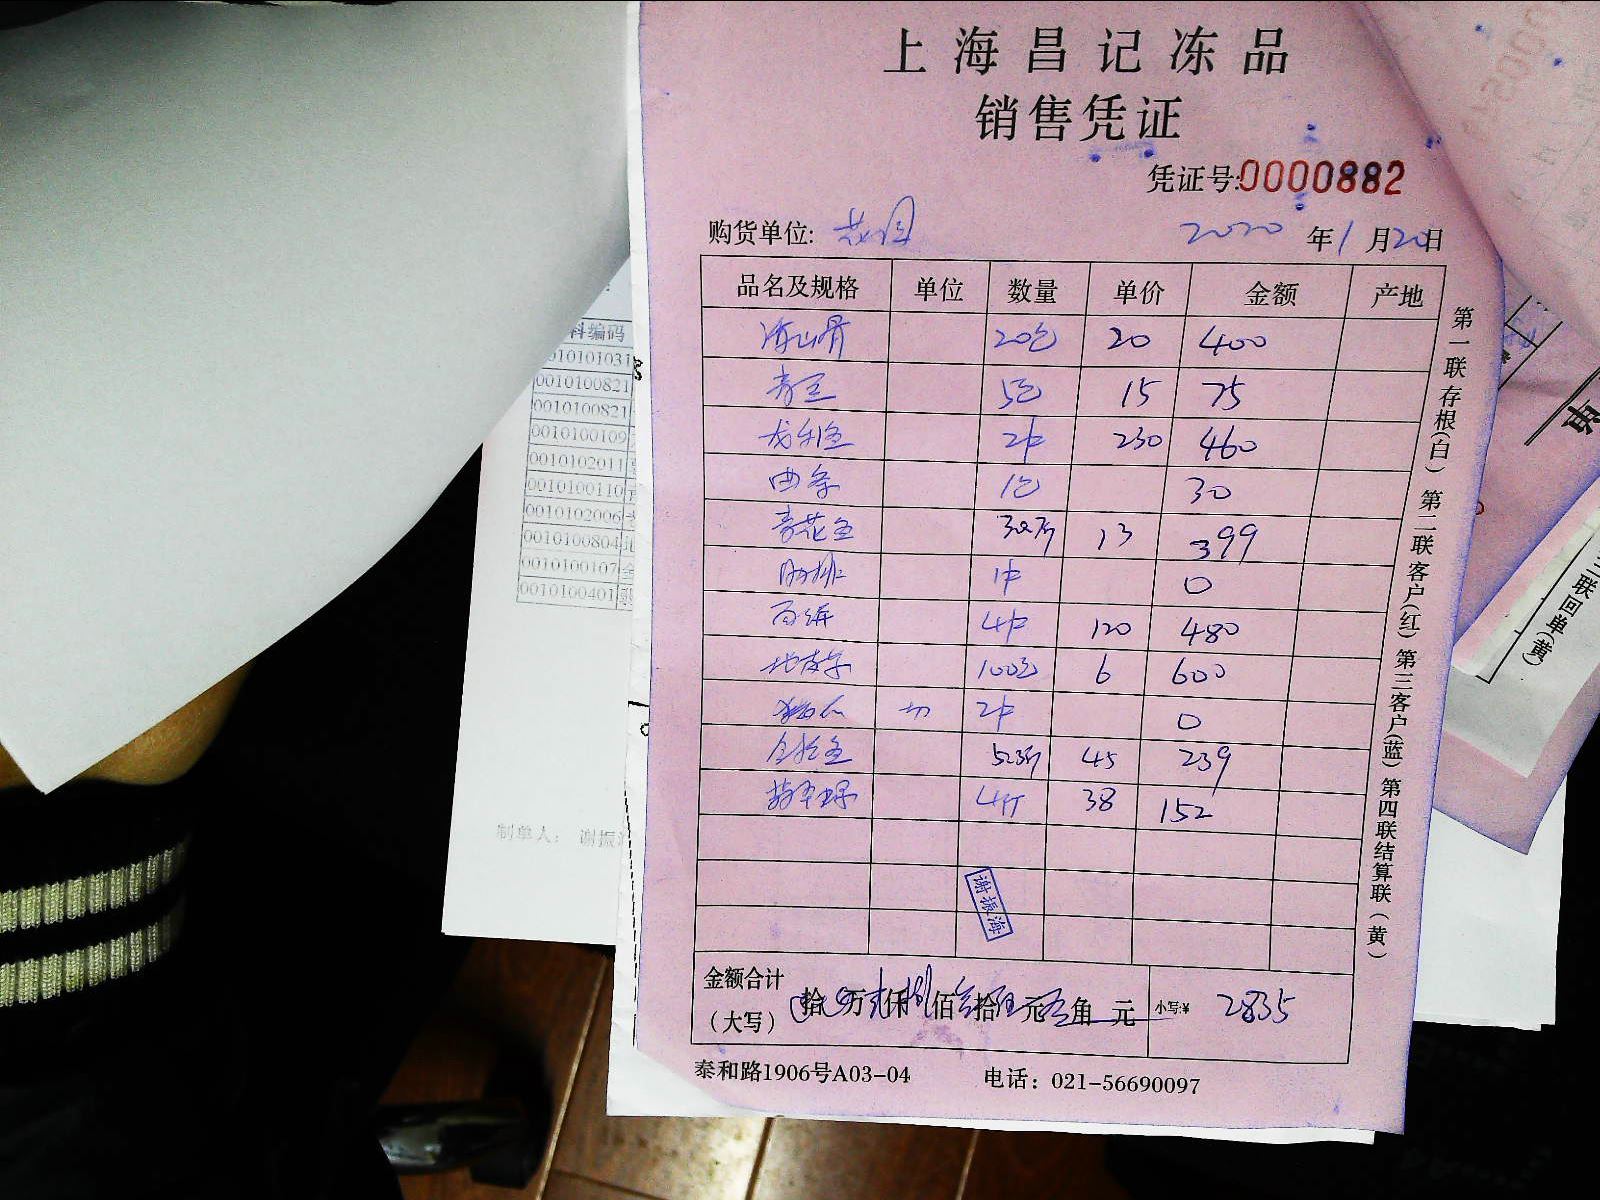 上海昌记冻品
销售凭证
凭证号:0000882
购货单位: 花园 2020年1月20日
品名及规格 单位 数量 单价 金额 产地
20包 20 400
青豆 5包 15 75
龙利鱼 2件 230 460
西芹 1包 30
青花鱼 13 399
肋排 1件 0
4件 120 480
100包 6 600
2件 0
45 239
38 152
谢振海
金额合计
(大写) 拾 万 仟 佰 拾 元 角 元 小写:¥ 2835
泰和路1906号A03-04 电话：021-56690097
第一联存根(白) 第二联客户(红) 第三客户(蓝) 第四联结算联(黄)
料编码
0010101031
0010100821
0010100821
0010100109
0010102011
0010100110
0010102006
0010100804
0010100107
0010100401
制单人： 谢振
三联回单(黄)